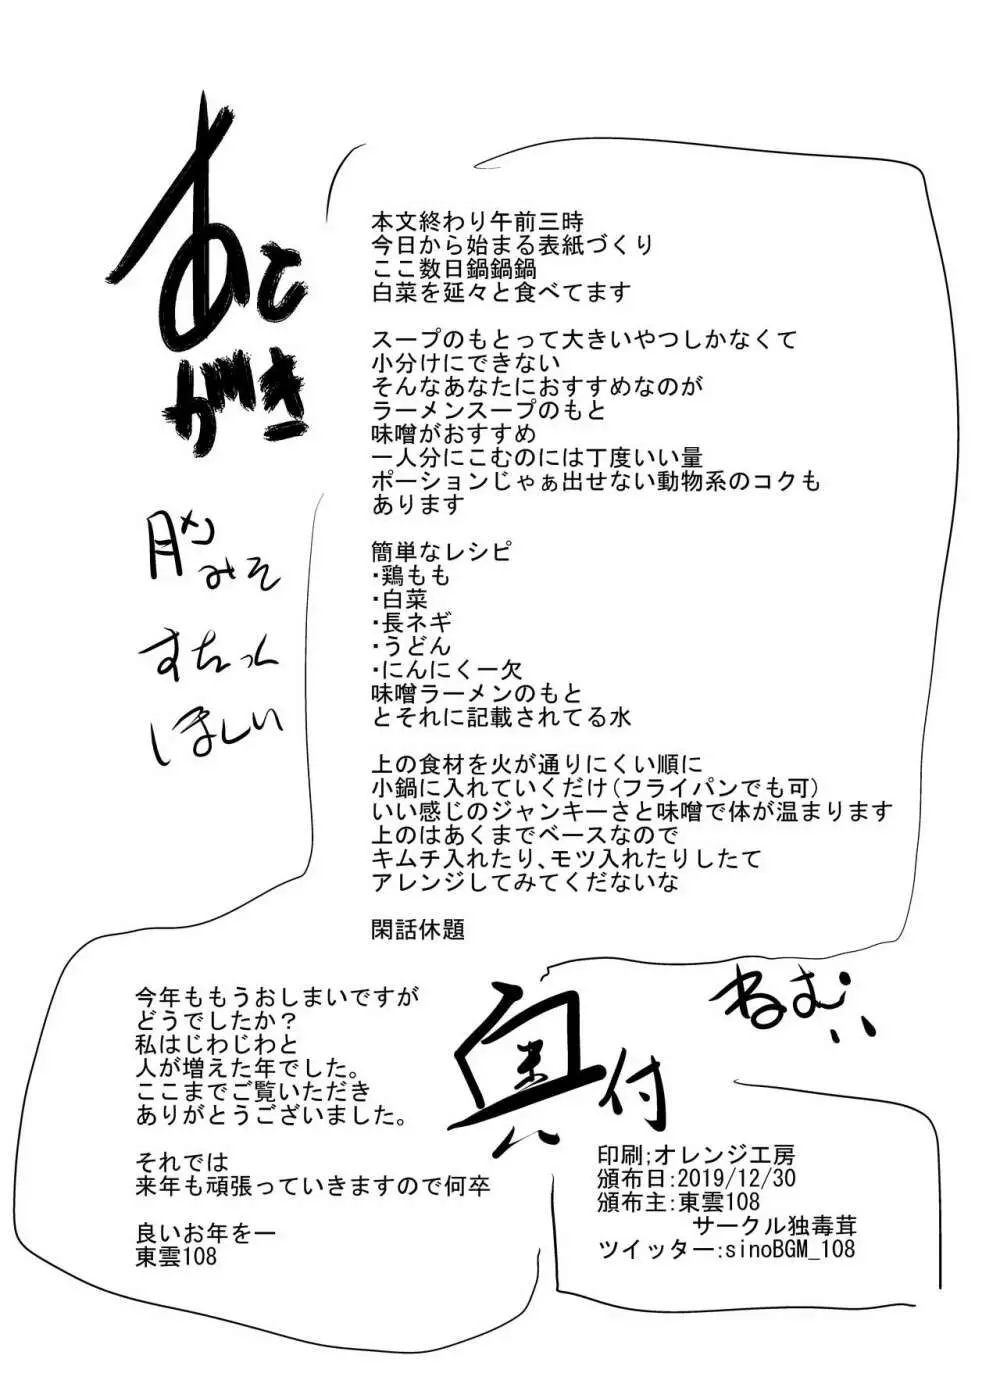 あとがき
本文終わり午前三時
今日から始まる表紙づくり
ここ数日鍋鍋鍋
白菜を延々と食べてます
スープのもとって大きいやつしかなくて
小分けにできない
そんなあなたにおすすめなのが
ラーメンスープのもと
味噌がおすすめ
一人分にこむのには丁度いい量
ポーションじゃぁ出せない動物系のコクも
あります
簡単なレシピ
・鶏もも
・白菜
・長ネギ
・うどん
・にんにく一欠
味噌ラーメンのもと
とそれに記載されてる水
上の食材を火が通りにくい順に
小鍋に入れていくだけ(フライパンでも可)
いい感じのジャンキーさと味噌で体が温まります
上のはあくまでベースなので
キムチ入れたり、モツ入れたりしたて
アレンジしてみてくだないな
閑話休題
みそ
すたっく
ほしい
今年ももうおしまいですが
どうでしたか?
私はじわじわと
人が増えた年でした。
ここまでご覧いただき
ありがとうございました。
それでは
来年も頑張っていきますので何卒
良いお年をー
東雲108
ねむい
奥付
印刷;オレンジ工房
頒布日:2019/12/30
頒布主:東雲108
サークル独毒茸
ツイッター:sinoBGM_108